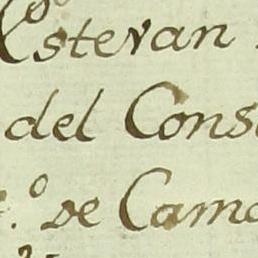 Estevan
del Cons
.º de Cam